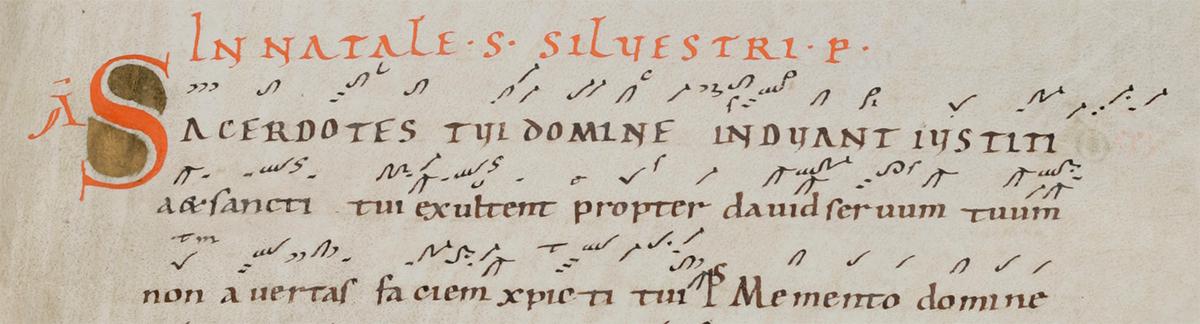 IN NATALE · S · SILVESTRI · P ·
A SACERDOTES TUI DOMINE INDUANT IUSTITI
a&sancti tui exultent propter dauid seruum tuum
non auertas faciem xpicti tui Ps Memento domine